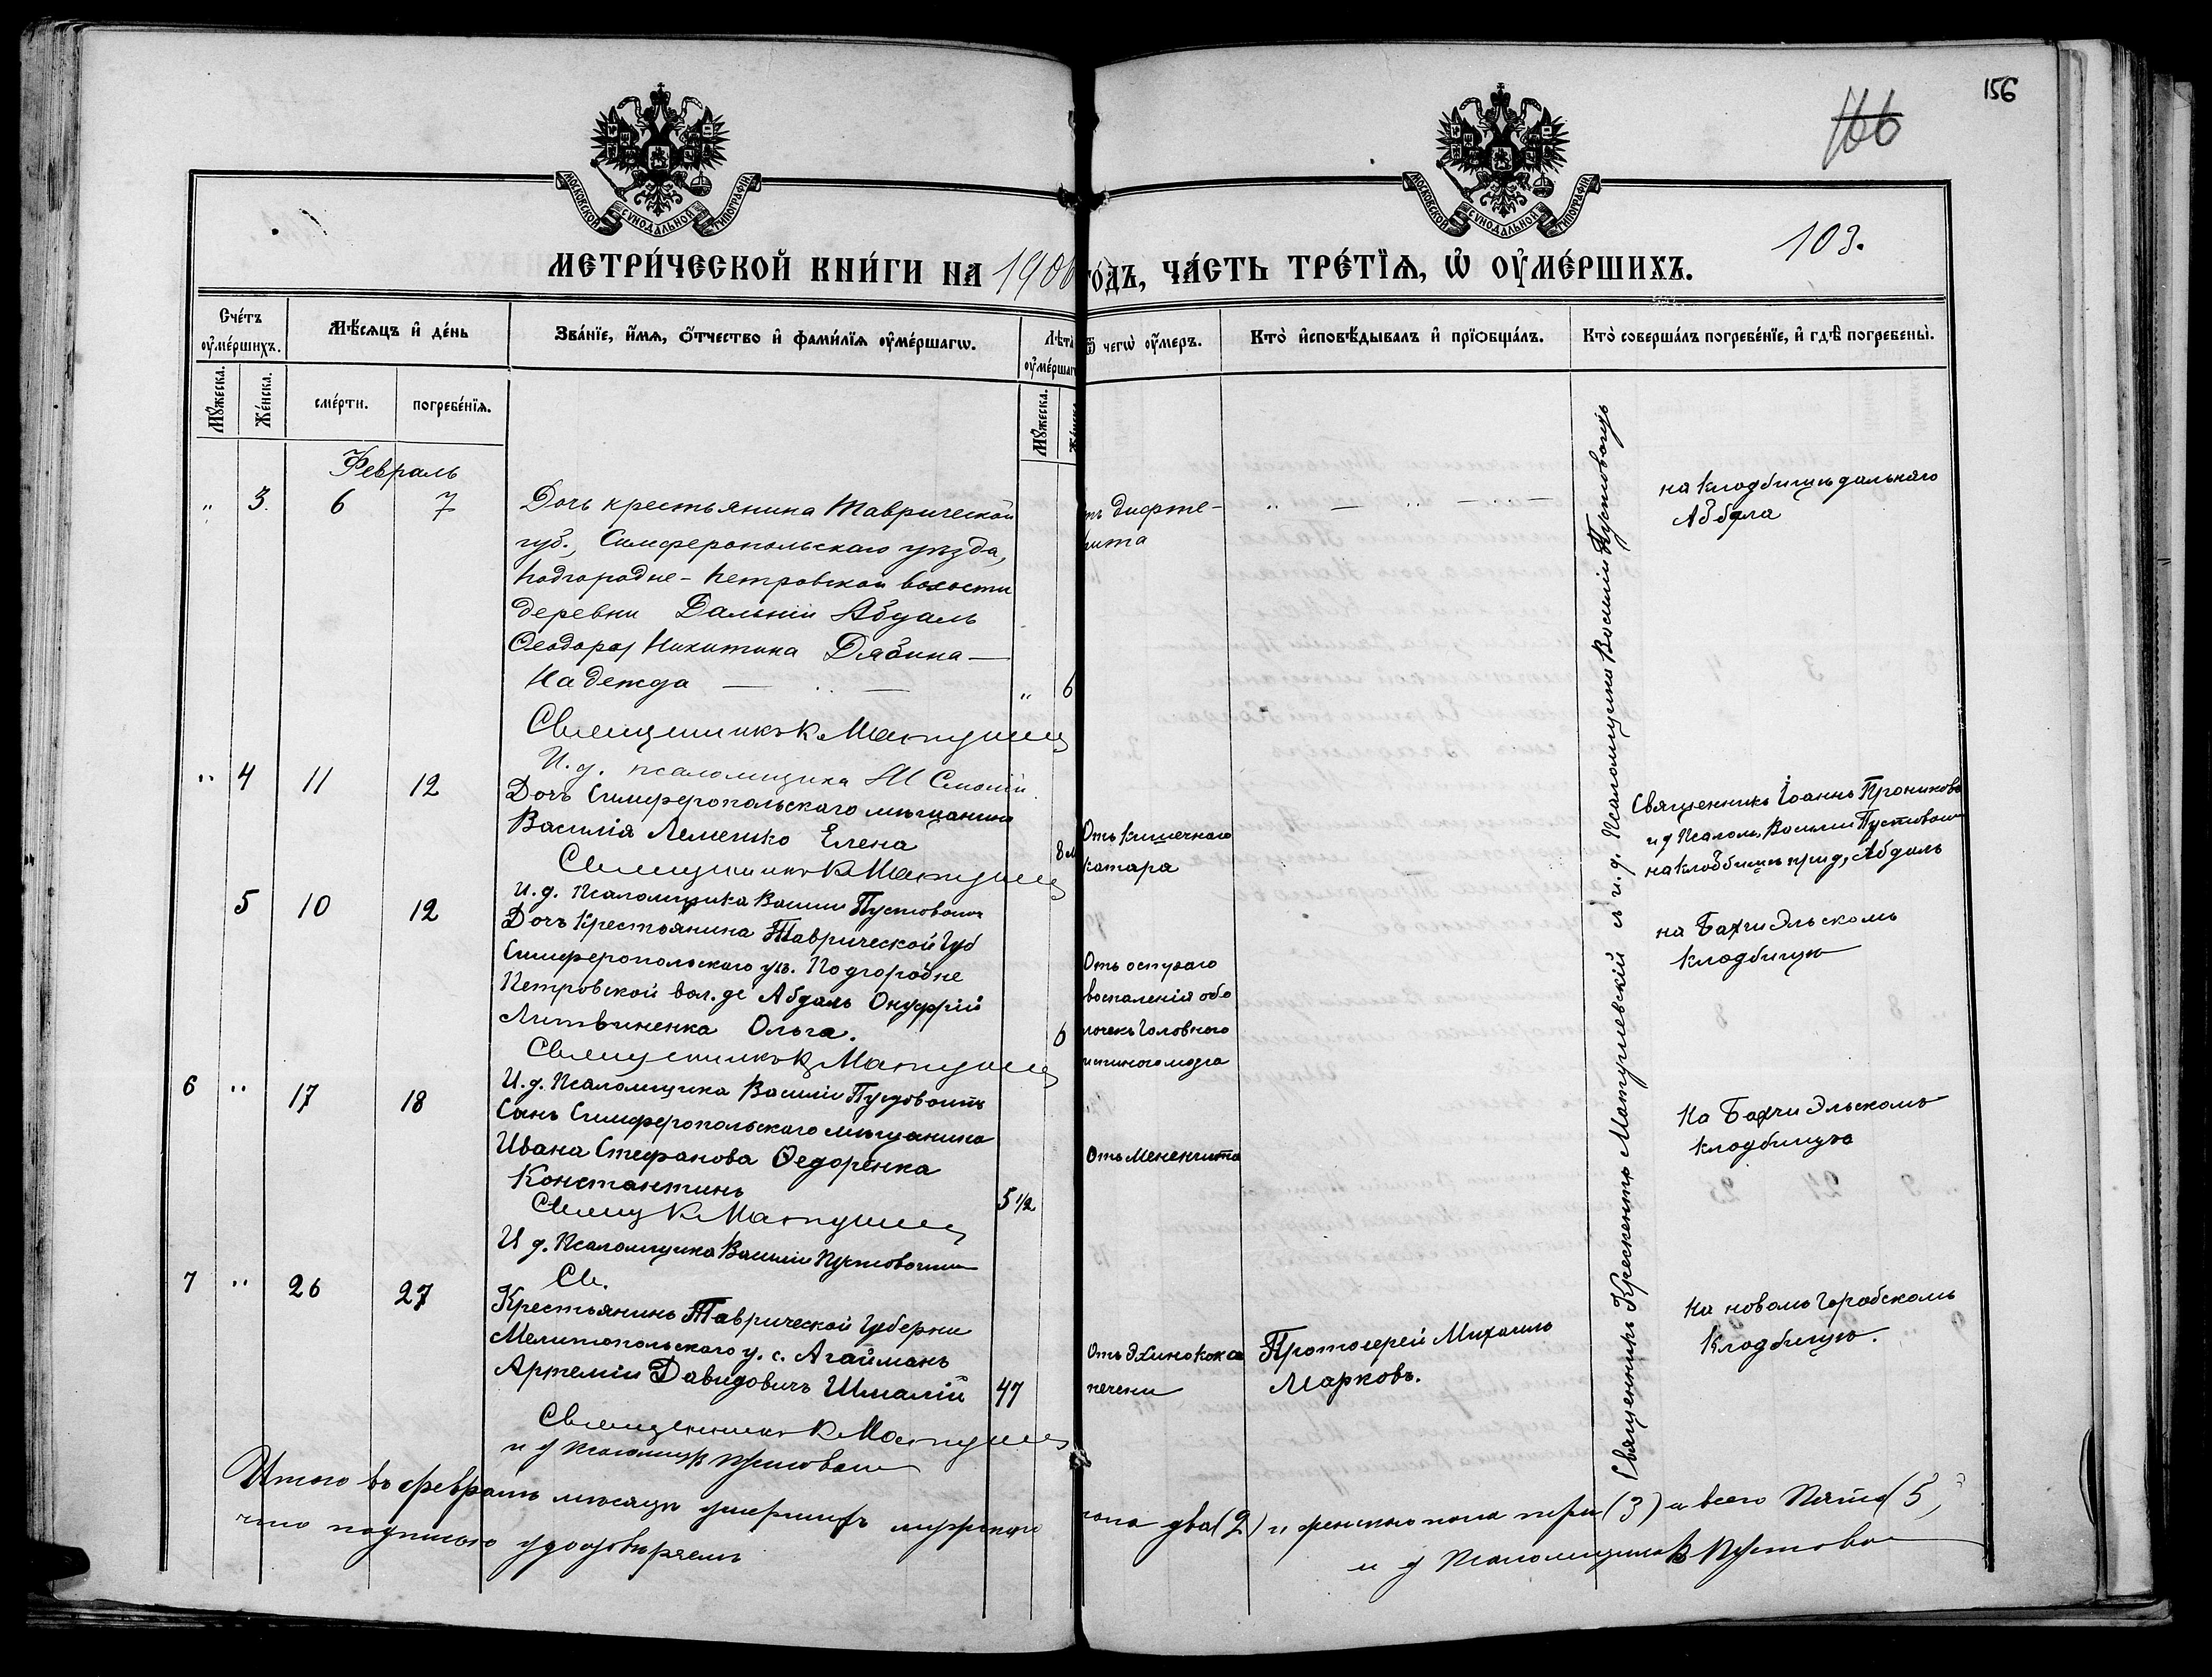 156
166
МОСКОВСКОЙ СѴНОДАЛЬНОЙ ТИПОГРАФІИ
МОСКОВСКОЙ СѴНОДАЛЬНОЙ ТИПОГРАФІИ
103.
МЕТРИ́ЧЕСКОЙ КНИ́ГИ НА 190 ГО́ДЪ, ЧА́СТЬ ТРЕ́ТЇѦ, Ѡ҆ ОУ҆МЕ́РШИХЪ.
Сче́тъ оу҆ме́ршихъ.
Мѣ́сѧцъ и҆ де́нь
Зва́нїе, и҆́мѧ, ѻ҆́тчество и҆ фами́лїѧ оу҆ме́ршагѡ.
Лѣта̀ оу҆ме́ршагѡ
Ѿ чегѡ̀ оу҆́меръ.
Кто̀ и҆сповѣ́дывалъ и҆ прїѡбща́лъ.
Кто̀ соверша́лъ погребе́нїе, и҆ гдѣ̀ погребены̀.
Мꙋ́жеска.
Же́нска.
сме́рти.
погребе́нїѧ.
Мꙋ́жеска.
Февраль
" 3. 6 7
Дочь крестьянина Таврической
губ., Симферопольскаго уѣзда,
Подгородне-Петровской волости
деревни Дальній Абдалъ
Ѳеодора Никитина Дябина —
Надежда — " — " 6
Священникъ К Матуше
И. д. псаломщика
тъ дифте-
рита
" — " — " —
на кладбищѣ дальняго
Абдала
" 4 11 12
Дочь Симферопольскаго мѣщанина
Василія Лемешко Елена 8 м
Священникъ К Матуше
И. д. Псаломщика Василій Пустовойтъ
Отъ кишечнаго
катара
Священникъ Іоаннъ Прониковъ
и д Псалом. Василій Пустовойтъ
на кладбищѣ при д. Абдалъ
5 10 12
Дочь Крестьянина Таврической Губ
Симферопольскаго уѣз. Подгородне
Петровской вол. де Абдалъ Онуфрій
Литвиненка Ольга. 6
Священникъ К Матуше
И. д. Псаломщика Василій Пустовоитъ
Отъ остраго
воспаленія обо
лочекъ Головного
и спиного мозга
на Бахчи Эльскомъ
Кладбищѣ
6 " 17 18
Сынъ Симферопольскаго мѣщанина
Ивана Стефанова Ѳедоренка
Константинъ 5 1/2
Свящ К Матуше
И д. Псаломщика Василій Пустовоитъ
Отъ Мененгита
На Бахчи Эльскомъ
Кладбищѣ
7 " 26 27
Св.
Крестьянинъ Таврической Губерніи
Мелитопольскаго у. с. Агайманъ
Артемій Давидовичъ Шмалій 47
Священникъ К Матуше
и д псаломщ В Пустовои
Отъ эхинококса
печени
Протоіерей Михаилъ
Марковъ.
На новомъ Городскомъ
Кладбищѣ.
Священникъ Крескентъ Матушевскій съ и. д. Псаломщика Василій Пустовойтъ
Итого въ февралѣ мѣсяцѣ умершихъ мужска пола два (2) и женскаго пола три (3) а всего пять (5)
что подписью удостовѣряемъ
и д Псаломщика В Пустово